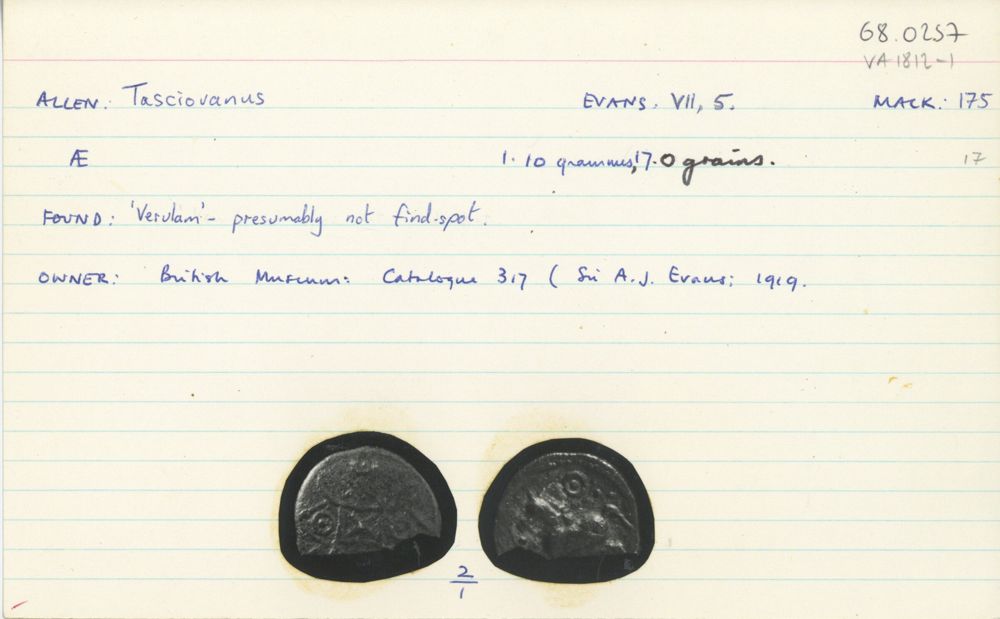 68.0257
VA 1812-1
ALLEN: Tasciovanus EVANS. VII, 5. MACK: 175
Æ 1.10 grammes, 17.0 grains. 17
FOUND: 'Verulam' - presumably not find-spot.
OWNER: British Museum: Catalogue 317 ( Sir A.J. Evans; 1919.
2
1